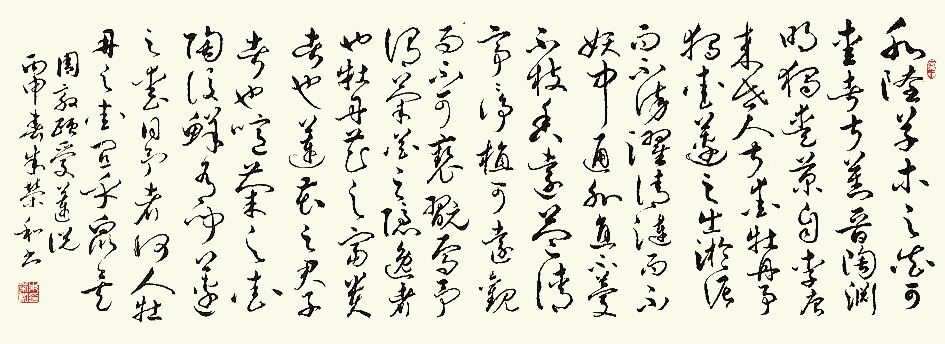 水陸草木之花可
愛者甚蕃晉陶淵
明獨愛菊自李唐
來世人甚愛牡丹予
獨愛蓮之出淤泥
而不染濯清漣而不
妖中通外直不蔓
不枝香遠益清
亭亭淨植可遠觀
而不可褻翫焉予
謂菊花之隱逸者
也牡丹花之富貴
者也蓮花之君子
者也噫菊之愛
陶後鮮有聞蓮
之愛同予者何人牡
丹之愛宜乎眾矣
周敦頤愛蓮說
丙申春朱榮和書